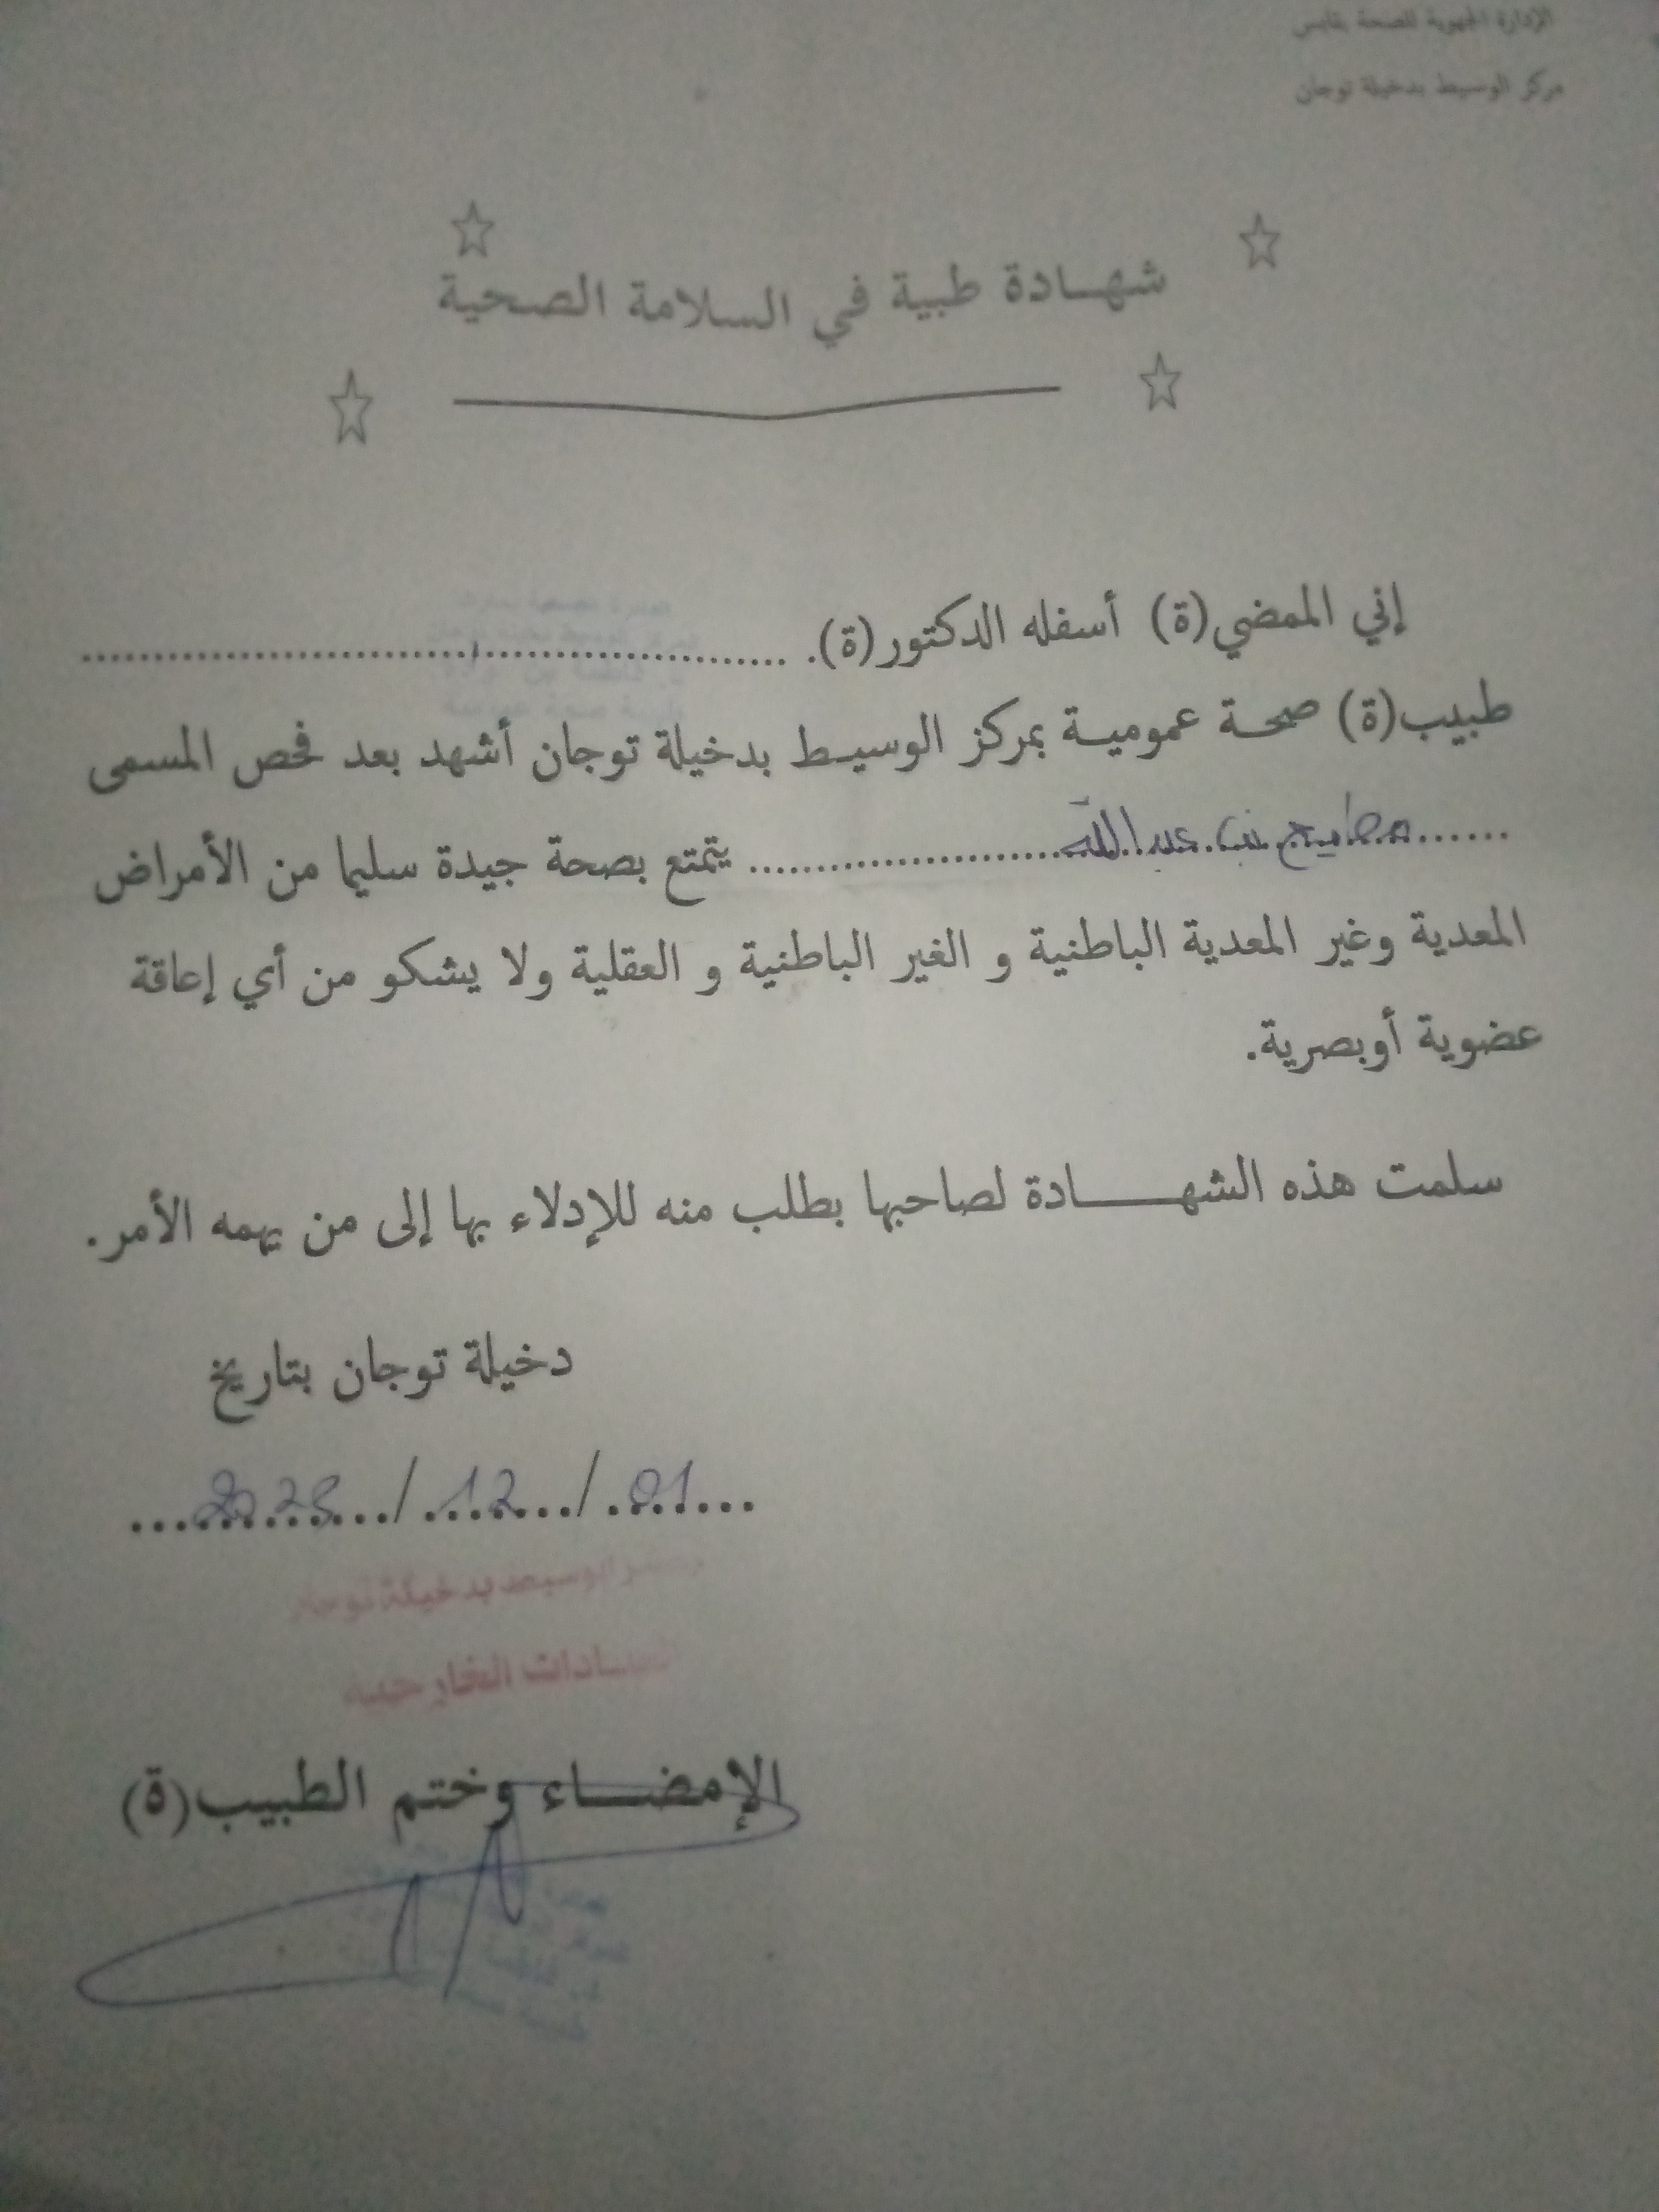 الإدارة الجهوية للصحة بقابس
مركز الوسيط بدخيلة توجان
شهـــادة طبية في السلامة الصحية
إني الممضي(ة) أسفله الدكتور(ة). ......................................................
طبيب(ة) صحة عمومية بمركز الوسيط بدخيلة توجان أشهد بعد فحص المسمى
...... بن عبد الله ........................ يتمتع بصحة جيدة سليما من الأمراض
المعدية وغير المعدية الباطنية و الغير الباطنية و العقلية ولا يشكو من أي إعاقة
عضوية أوبصرية.
سلمت هذه الشهــــــــادة لصاحبها بطلب منه للإدلاء بها إلى من يهمه الأمر.
دخيلة توجان بتاريخ
...01.../...12.../...2023...
الوسيط بدخيلة توجان
الخارجية
الإمضــــاء وختم الطبيب(ة)